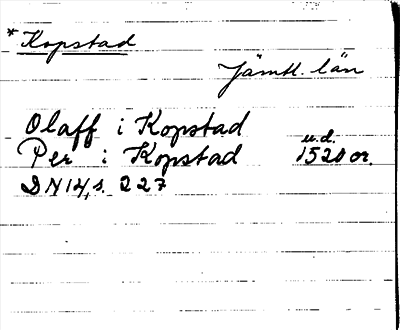 *Kopstad
Jämtl. län
Olaff i Kopstad
u.d.
Per i Kopstad 1520 or.
DN 14, s. 227